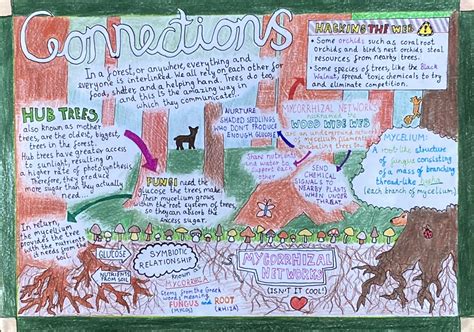 Connections
In a forest, or anywhere, everything and
everyone is interlinked. We all rely on each other for
food, shelter, and a helping hand. Trees do too,
and this is the amazing way in
which they communicate!
HACKING THE WEB
• Some orchids such as coral root
orchids and bird's nest orchids steal
resources from nearby trees.
• Some species of trees, like the Black
Walnut, spread toxic chemicals to try
and eliminate competition.
HUB TREES,
also known as mother
trees, are the oldest, biggest,
trees in the forest.
Hub trees have greater access
to sunlight, resulting in
a higher rate of photosynthesis
Therefore, they produce
more sugar than they actually
need...
NURTURE
SHADED SEEDLINGS
WHO DON'T PRODUCE
ENOUGH GLUCOSE
MYCORRHIZAL NETWORKS
nicknamed
WOOD WIDE WEB
are an underground network
of mycelium
trees to...
MYCELIUM:
A root-like structure
of fungus consisting
of a mass of branching
thread-like hyphae
(each branch of mycelium)
Share nutrients
and water to
support each
other
SEND
CHEMICAL
SIGNALS TO
NEARBY PLANTS
WHEN UNDER
THREAT
FUNGI need the
glucose the trees make.
Their mycelium grows
into the root system of trees,
so they can absorb the
excess sugar.
In return,
the mycelium
provides the tree
with the nutrients
it needs from the
soil.
GLUCOSE
NUTRIENTS
FROM SOIL
SYMBIOTIC
RELATIONSHIP
known as
MYCORRHIZA
Stems from the Greek
words meaning
FUNGUS and ROOT
(MYKOS) (RHIZA)
MYCORRHIZAL
NETWORKS
(ISN'T IT COOL!)